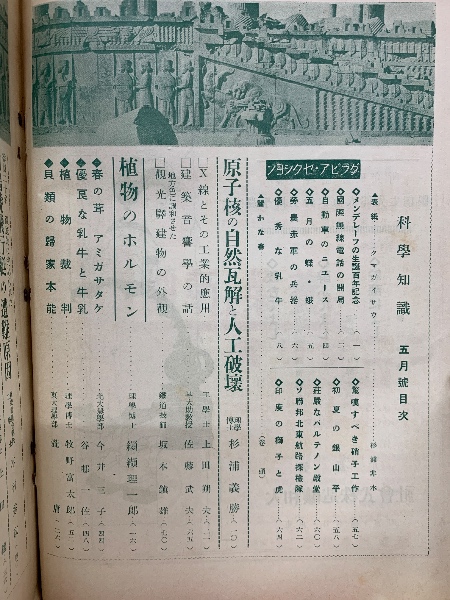 科學知識 五月號目次
◆表紙……クマガイサウ……杉浦非水
グラビア・セクシヨン
◆メンデレーフの生誕百年記念…(一)
◆國際無線電話の開局…(二)
◆自動車のニュース…(四)
◆五月の蝶・蛾…(五)
◆勞農赤軍の兵器…(六)
◆優秀な乳牛…(八)
◆豐かな春……(卷頭)
◆驚嘆すべき硝子工作…(五七)
◆初夏の銀山平…(五八)
◆莊嚴なパルテノン殿堂…(六〇)
◆ソ聯邦北東航路探檢隊…(六二)
◆印度の獅子と虎…(六四)
原子核の自然瓦解と人工破壞 理學博士 杉浦義勝(一〇)
□X線とその工業的應用……工學士 上田
□建築音響學の話……助教授 佐藤武夫(六五)
□地方色に調和させた觀光驛建物の外觀……鐵道技師(七〇)
植物のホルモン……理學博士 纐纈理一郎(一六)
◆春の茸 アミガサタケ……今井三子(四四)
◆優良な乳牛と牛乳……(四八)
◆植物裁判……理學博士 牧野富太郎(五一)
◆貝類の歸家本能